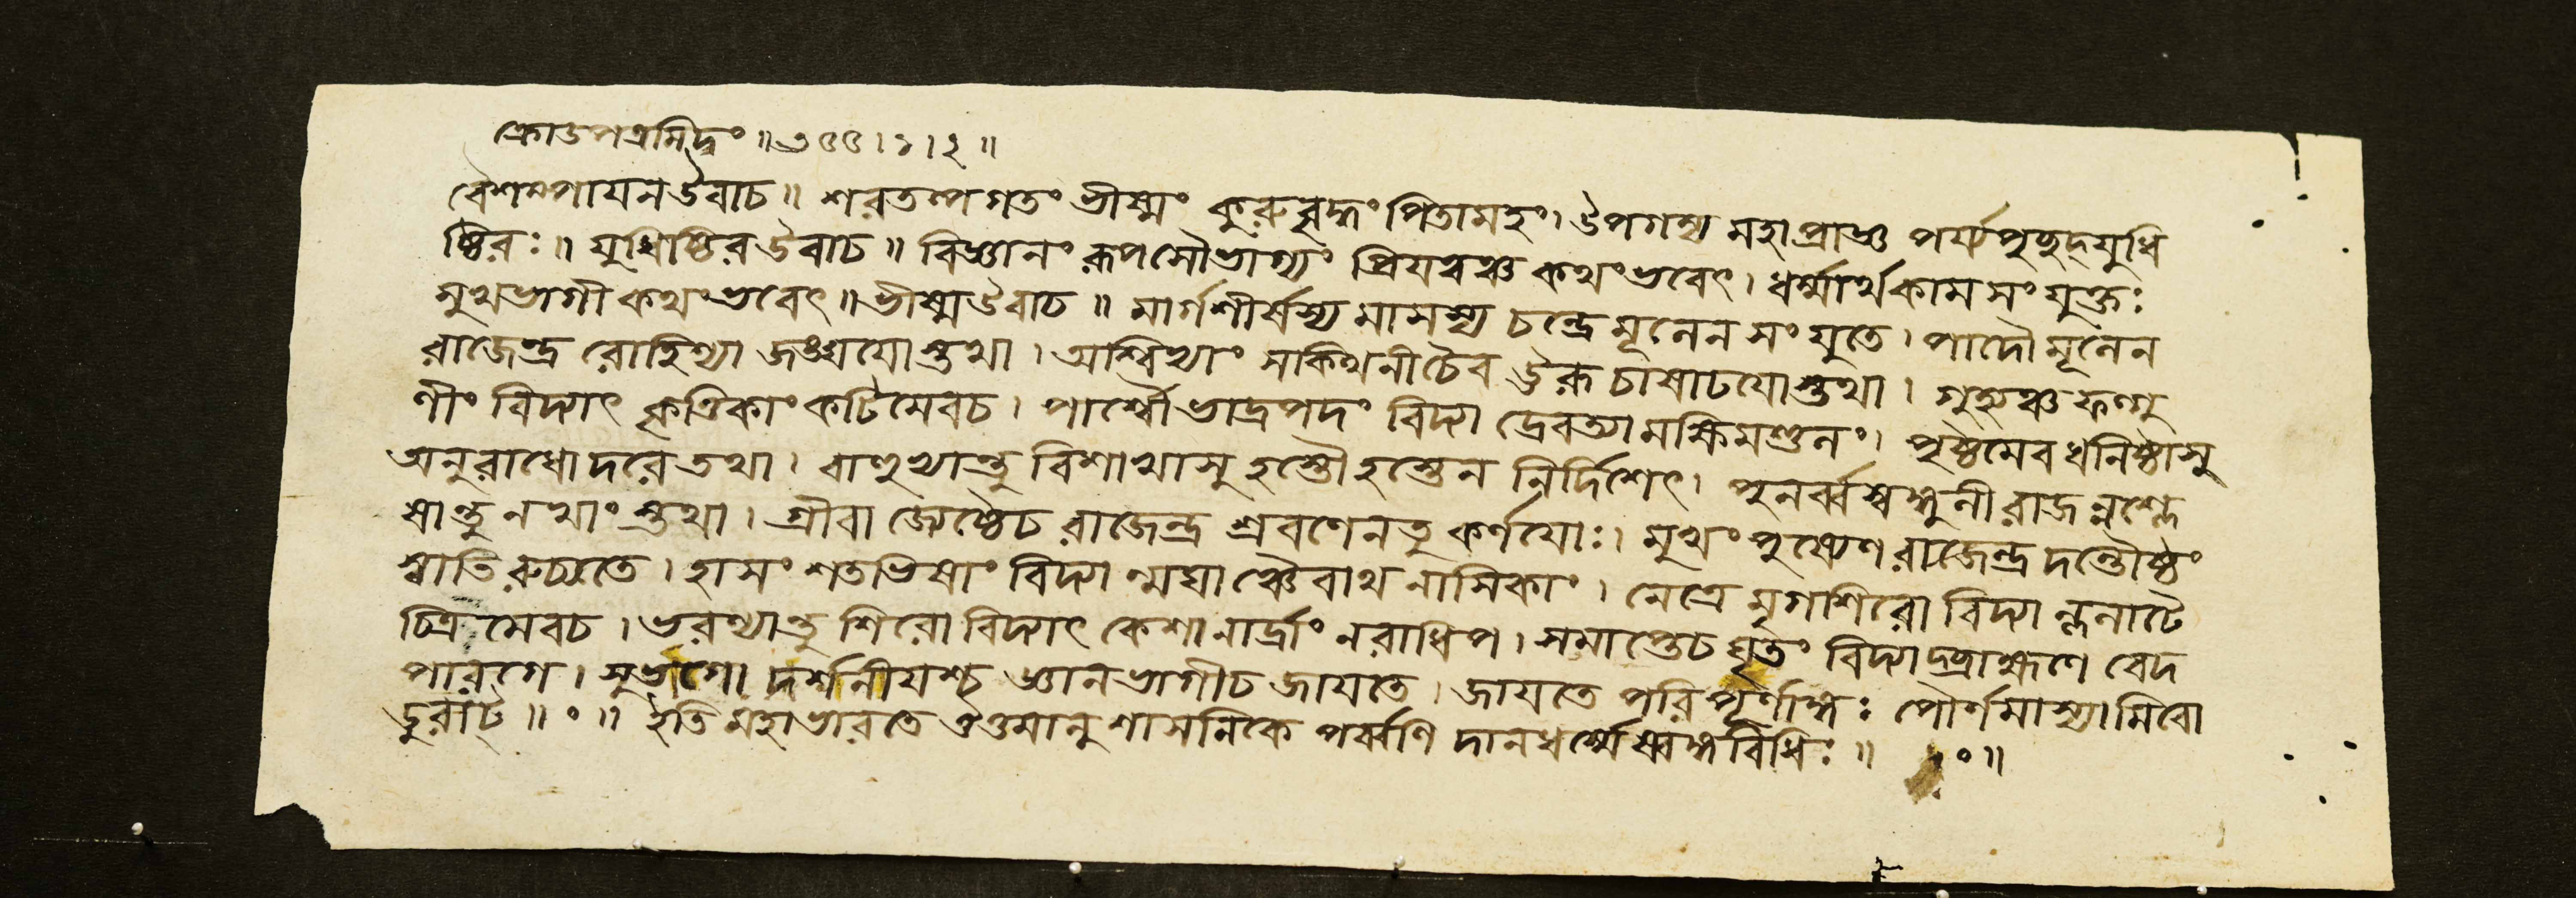 ক্রোডপত্রমিদং ॥ ৩৫৫ । ১ । ২ ॥
বৈশম্পাযনউবাচ ॥ শরতল্পগতং ভীষ্মং কুরুবৃদ্ধং পিতামহং । উপগম্য মহাপ্রাজ্ঞ পর্য্যপৃচ্ছদ্যুধি
ষ্ঠিরঃ ॥ যুধিষ্ঠিরউবাচ ॥ বিজ্ঞানং রূপসৌভাগ্যং প্রিযত্বঞ্চ কথংভবেৎ । ধর্ম্মার্থকামসংযুক্তঃ
সুখভাগী কথংভবেৎ ॥ ভীষ্মউবাচ ॥ মার্গশীর্ষস্য মাসস্য চন্দ্রে মূলেন সংযুতে । পাদৌ মূলেন
রাজেন্দ্র রোহিণ্যা জঙ্ঘযোস্তথা । অশ্বিন্যাং সক্থিনীচৈব ঊরূ চাষাঢযোস্তথা । গুহ্যঞ্চ ফল্গু
ণীং বিদ্যাৎ কৃত্তিকাং কটিমেবচ । পার্শ্বৌ ভাদ্রপদং বিদ্যা দ্রেবত্যামক্ষিমণ্ডলং । পৃষ্ঠমেব ধনিষ্ঠাসু
অনুরাধোদরে তথা । বাহুভ্যান্তু বিশাখাসু হস্তৌ হস্তেন নির্দিশেৎ । পুনর্ব্বস্বঙ্গুলী রাজন্নশ্লে
ষান্তু নখাং স্তথা । গ্রীবা জ্যেষ্ঠেচ রাজেন্দ্র শ্রবণেনতু কর্ণযোঃ । মুখং পুষ্যেণ রাজেন্দ্র দন্তৌষ্ঠং
স্বাতিরুচ্যতে । হাসং শতভিষাং বিদ্যা ন্মঘাঞ্চৈবাথ নাসিকাং । নেত্রে মৃগশিরো বিদ্যা ল্ললাটে
চিত্রমেবচ । ভরণ্যান্তু শিরো বিদ্যাৎ কেশানার্দ্রাং নরাধিপ । সমাপ্তেচ ঘৃতং বিদ্যাদ্ব্রাহ্মণে বেদ
পারগে । সুভগো দর্শনীযশ্চ জ্ঞানভাগীচ জাযতে । জাযতে পরিপূর্ণাঙ্গঃ পৌর্ণমাস্যামিবো
ডুরাট্ ॥ ০ ॥ ইতি মহাভারতে ঔত্তমানুশাসনিকে পর্ব্বণি দানধর্ম্মে ষ্বঙ্গবিধিঃ ॥ ০ ॥